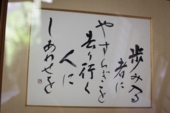 歩み入る
者に
やすらぎを
去り行く
人に
しあわせを